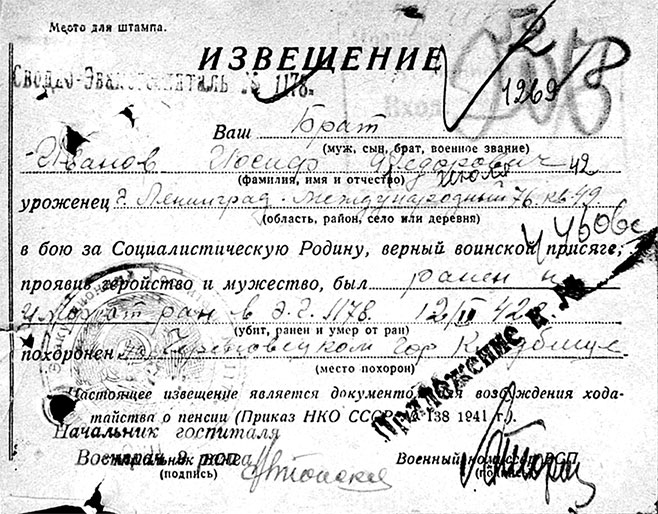 Место для штампа.
ИЗВЕЩЕНИЕ
Сводно-Эвакогоспиталь № 1178.
1269
Ваш Брат
(муж, сын, брат, военное звание)
Иванов Иосиф Федорович
(фамилия, имя и отчество)
уроженец г. Ленинград. Международный 76. кв. 49
(область, район, село или деревня)
в бою за Социалистическую Родину, верный воинской присяге,
проявив геройство и мужество, был ранен и
умер от ран в э.г. 1178. 12/III 42 г.
(убит, ранен и умер от ран)
похоронен на Череповецком гор Кладбище
(место похорон)
Приложение к №
Настоящее извещение является документом для возбуждения хода-
тайства о пенсии (Приказ НКО СССР № 138 1941 г.).
Начальник госпиталя
Военврач ранга
(подпись)
Военный комиссар
(подпись)